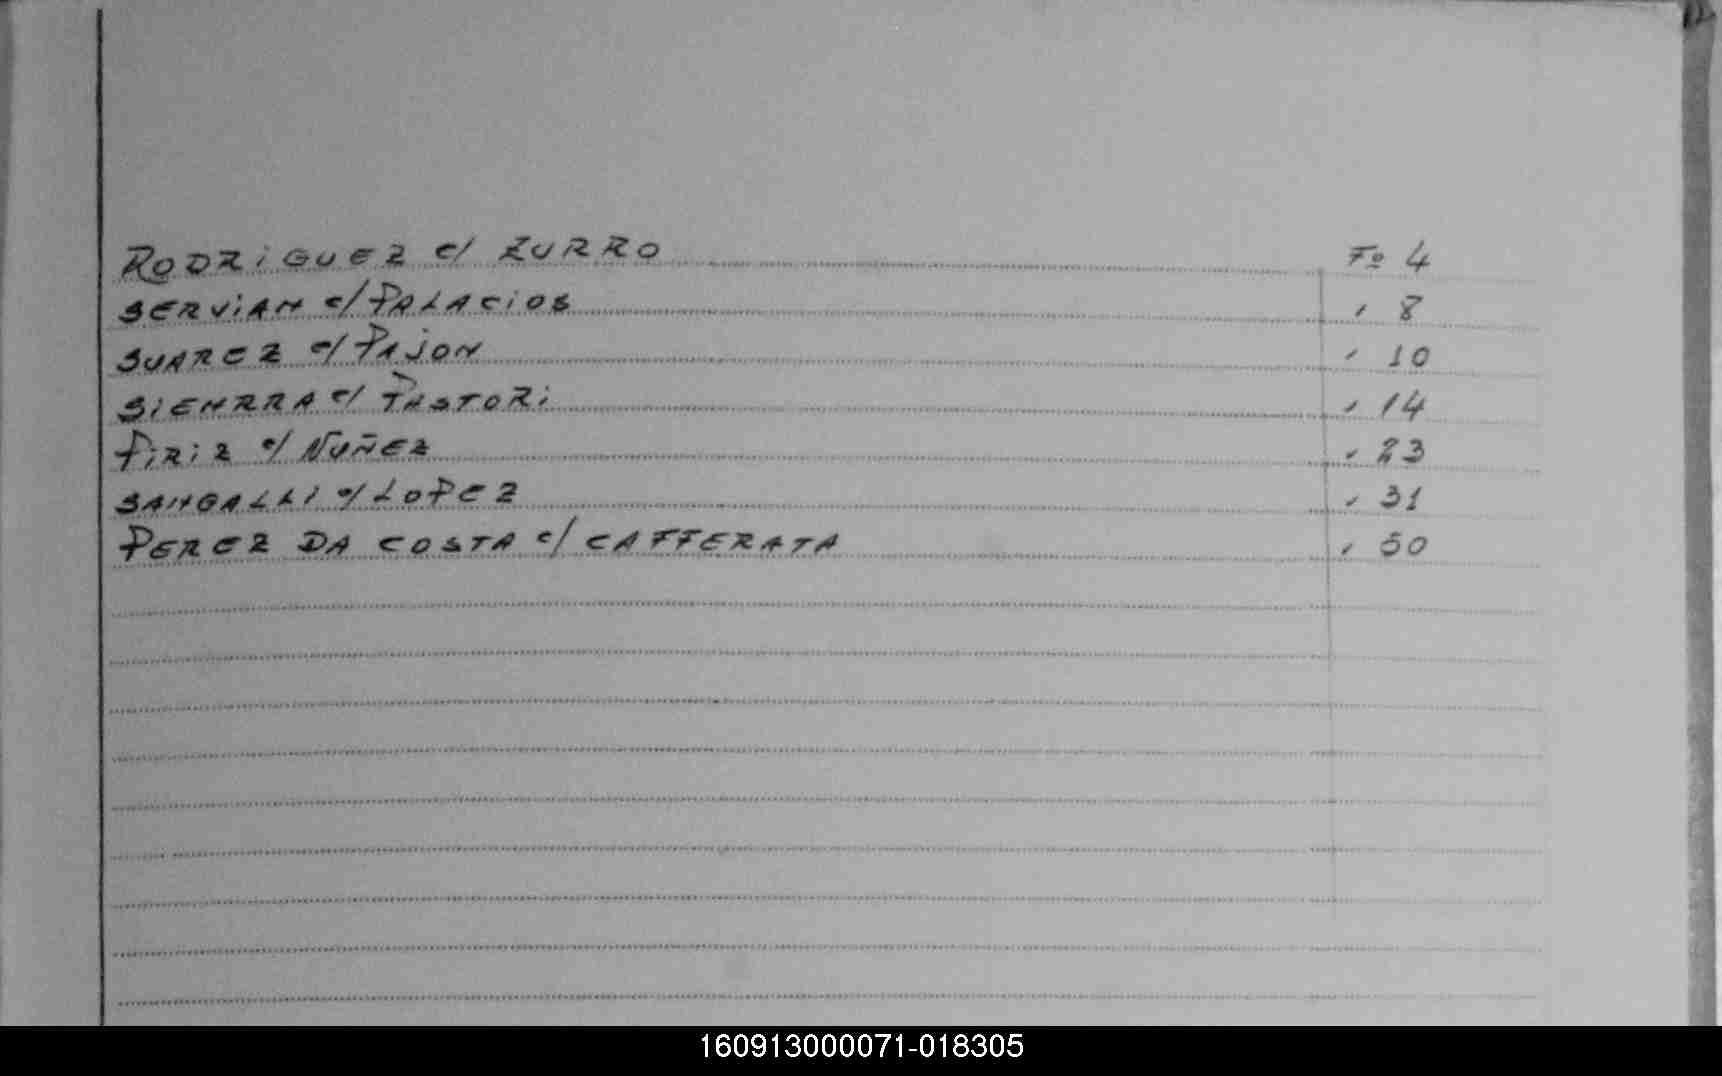 RODRiGUEZ c/ ZURRO Fº 4
SERViAN c/ PALACiOS , 8
SUAREZ c/ PAJON , 10
SiENRRA c/ PASTORi , 14
PiRiZ c/ NUÑEZ , 23
SANGALLi c/ LOPEZ , 31
PEREZ DA COSTA c/ CAFFERATA , 50
160913000071-018305